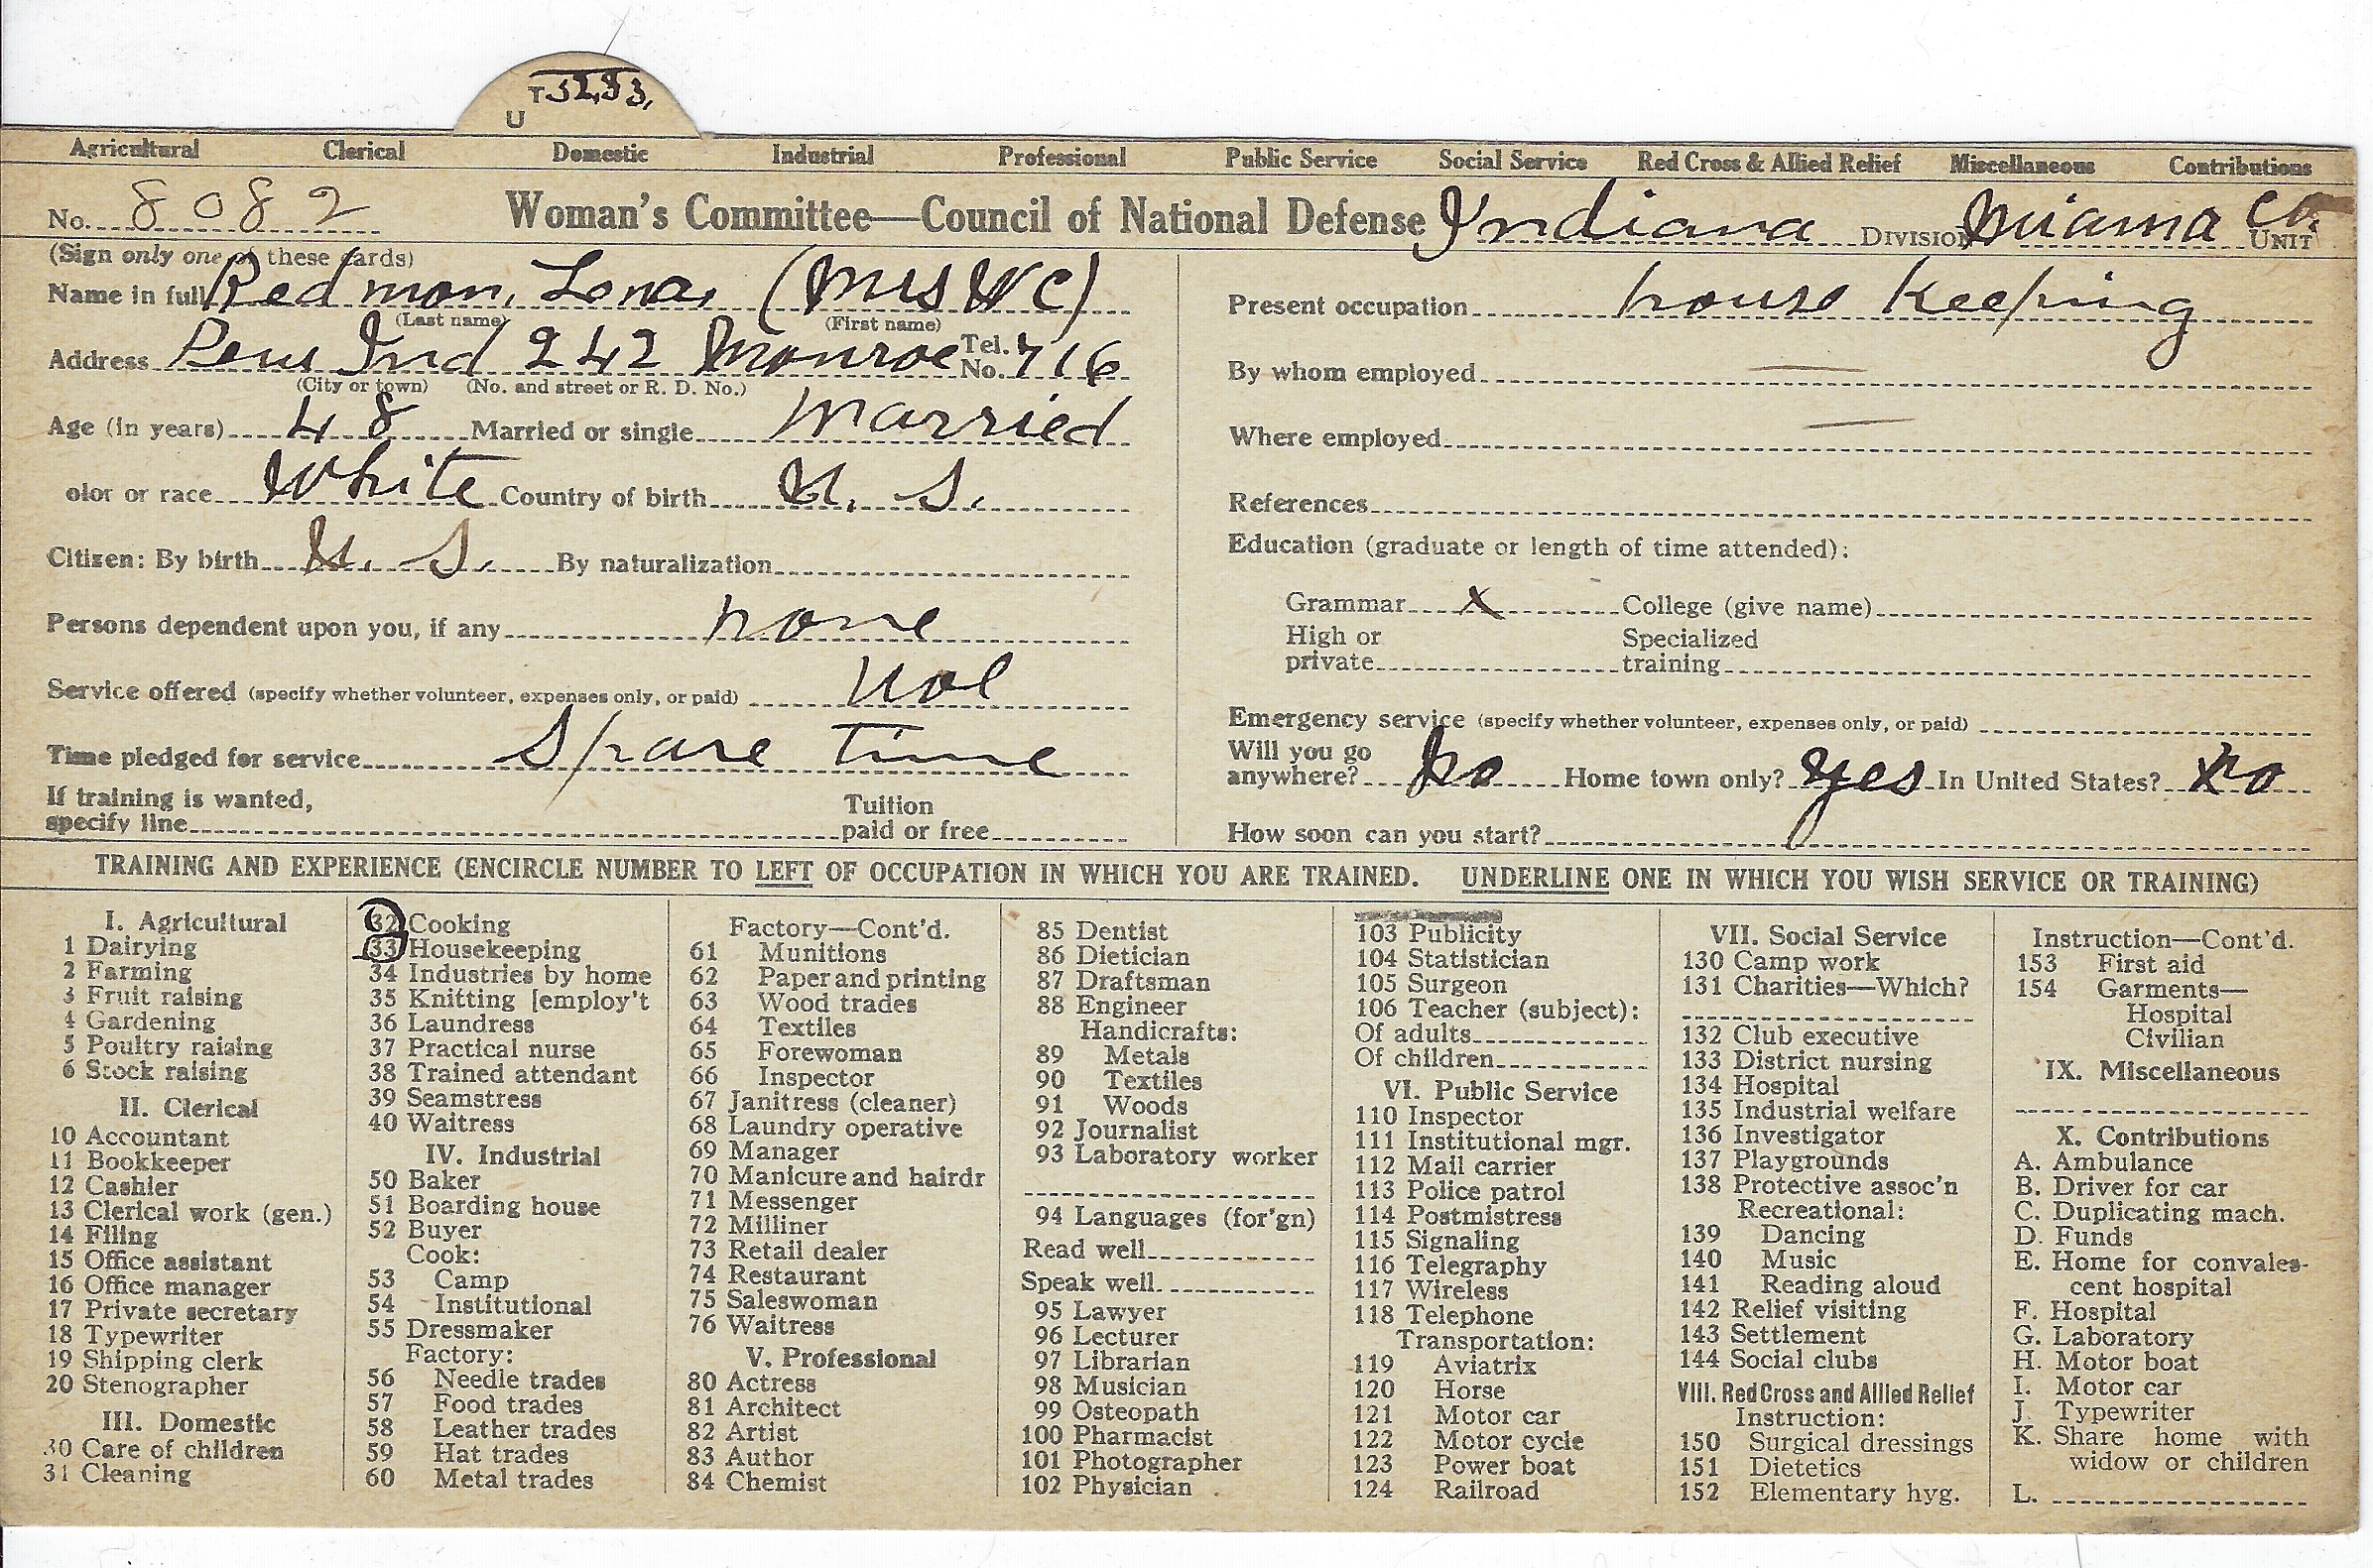 T 32,33,
U
Agricultural Clerical Domestic Industrial Professional Public Service Social Service Red Cross & Allied Relief Miscellaneous Contributions
No. 8082 Woman's Committee—Council of National Defense Indiana DIVISION Miama Co. UNIT
(Sign only one of these cards)
Name in full Redmon, Lena, (Mrs WC)
(Last name) (First name)
Address Peru Ind 242 Monroe Tel. No. 716
(City or town) (No. and street or R. D. No.)
Age (in years) 48 Married or single Married
olor or race White Country of birth U. S.
Citizen: By birth U. S. By naturalization
Persons dependent upon you, if any none
Service offered (specify whether volunteer, expenses only, or paid) Vol
Time pledged for service Spare time
If training is wanted, specify line Tuition paid or free
Present occupation house Keeping
By whom employed —
Where employed —
References
Education (graduate or length of time attended):
Grammar x College (give name)
High or private Specialized training
Emergency service (specify whether volunteer, expenses only, or paid)
Will you go anywhere? No Home town only? Yes In United States? No
How soon can you start?
TRAINING AND EXPERIENCE (ENCIRCLE NUMBER TO LEFT OF OCCUPATION IN WHICH YOU ARE TRAINED. UNDERLINE ONE IN WHICH YOU WISH SERVICE OR TRAINING)
I. Agricultural
1 Dairying
2 Farming
3 Fruit raising
4 Gardening
5 Poultry raising
6 Stock raising
II. Clerical
10 Accountant
11 Bookkeeper
12 Cashier
13 Clerical work (gen.)
14 Filing
15 Office assistant
16 Office manager
17 Private secretary
18 Typewriter
19 Shipping clerk
20 Stenographer
III. Domestic
30 Care of children
31 Cleaning
32 Cooking
33 Housekeeping
34 Industries by home
35 Knitting [employ't
36 Laundress
37 Practical nurse
38 Trained attendant
39 Seamstress
40 Waitress
IV. Industrial
50 Baker
51 Boarding house
52 Buyer
Cook:
53 Camp
54 Institutional
55 Dressmaker
Factory:
56 Needle trades
57 Food trades
58 Leather trades
59 Hat trades
60 Metal trades
Factory—Cont'd.
61 Munitions
62 Paper and printing
63 Wood trades
64 Textiles
65 Forewoman
66 Inspector
67 Janitress (cleaner)
68 Laundry operative
69 Manager
70 Manicure and hairdr
71 Messenger
72 Milliner
73 Retail dealer
74 Restaurant
75 Saleswoman
76 Waitress
V. Professional
80 Actress
81 Architect
82 Artist
83 Author
84 Chemist
85 Dentist
86 Dietician
87 Draftsman
88 Engineer
Handicrafts:
89 Metals
90 Textiles
91 Woods
92 Journalist
93 Laboratory worker
94 Languages (for'gn)
Read well
Speak well
95 Lawyer
96 Lecturer
97 Librarian
98 Musician
99 Osteopath
100 Pharmacist
101 Photographer
102 Physician
103 Publicity
104 Statistician
105 Surgeon
106 Teacher (subject):
Of adults
Of children
VI. Public Service
110 Inspector
111 Institutional mgr.
112 Mail carrier
113 Police patrol
114 Postmistress
115 Signaling
116 Telegraphy
117 Wireless
118 Telephone
Transportation:
119 Aviatrix
120 Horse
121 Motor car
122 Motor cycle
123 Power boat
124 Railroad
VII. Social Service
130 Camp work
131 Charities—Which?
132 Club executive
133 District nursing
134 Hospital
135 Industrial welfare
136 Investigator
137 Playgrounds
138 Protective assoc'n
Recreational:
139 Dancing
140 Music
141 Reading aloud
142 Relief visiting
143 Settlement
144 Social clubs
VIII. Red Cross and Allied Relief
Instruction:
150 Surgical dressings
151 Dietetics
152 Elementary hyg.
Instruction—Cont'd.
153 First aid
154 Garments—
Hospital
Civilian
IX. Miscellaneous
X. Contributions
A. Ambulance
B. Driver for car
C. Duplicating mach.
D. Funds
E. Home for convales-
cent hospital
F. Hospital
G. Laboratory
H. Motor boat
I. Motor car
J. Typewriter
K. Share home with
widow or children
L.